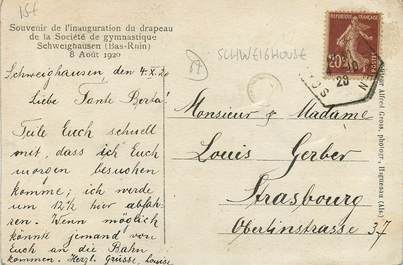 15f
Souvenir de l'inauguration du drapeau
de la Société de gymnastique
Schweighausen (Bas-Rhin)
8 Août 1920
SCHWEIGHOUSE
67
Schweighausen, den 4.X.20
Liebe Tante Berta!
Teile Euch schnell
mit, dass ich Euch
morgen besuchen
komme; ich werde
um 12½ hier abfah-
ren. Wenn möglich
könnt jemand von
Euch an die Bahn
kommen. Herzl. Grüsse, Louise
REPUBLIQUE FRANÇAISE
20c
POSTES
Monsieur & Madame
Louis Gerber
Strasbourg
Oberlinstrasse 37
Alfred Gross, photogr., Haguenau (Als.)